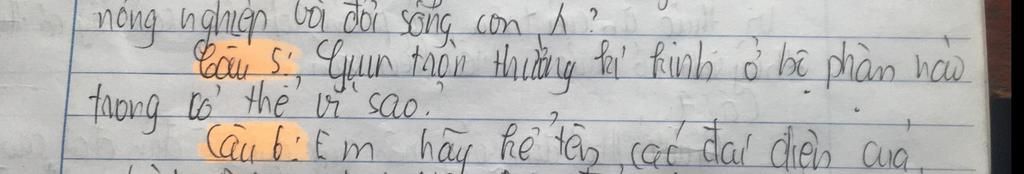 nông nghiệp với đời sống con λ?
Câu 5: Giun tròn thường kí kinh ở bộ phận nào
trong cơ thể vì sao?
Câu 6: Em hãy kể tên các đại diện của